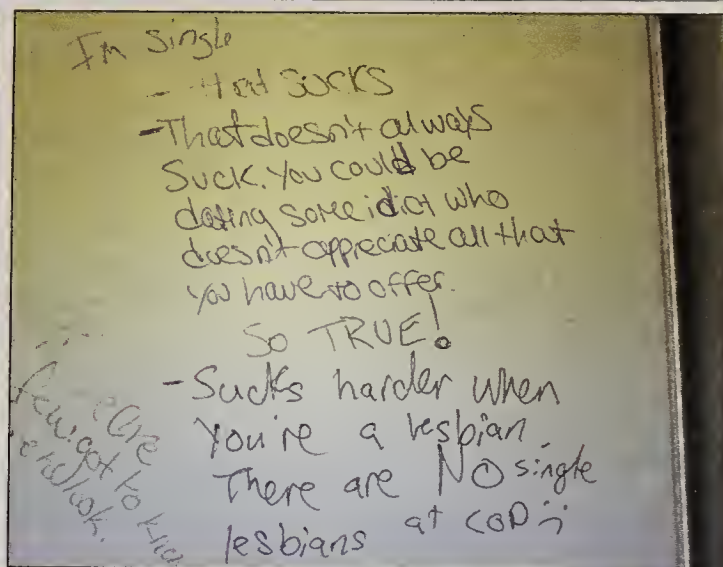 I'm single
- that SUCKS
- That doesn't always
Suck. You could be
dating some idiot who
doesn't appreciate all that
you have to offer.
SO TRUE!
- Sucks harder when
You're a lesbian
There are NO single
lesbians at COD :(
got to